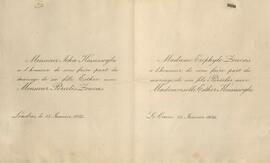 Monsieur John
a l'honneur de vous faire part du
mariage de sa fille Esther avec
Monsieur Périclès Zouros
Londres, le 15 Janvier
Madame Eriphyle Zouros
a l'honneur de vous faire part du
mariage de son fils Périclès avec
Mademoiselle Esther
Le Caire, 15 Janvier